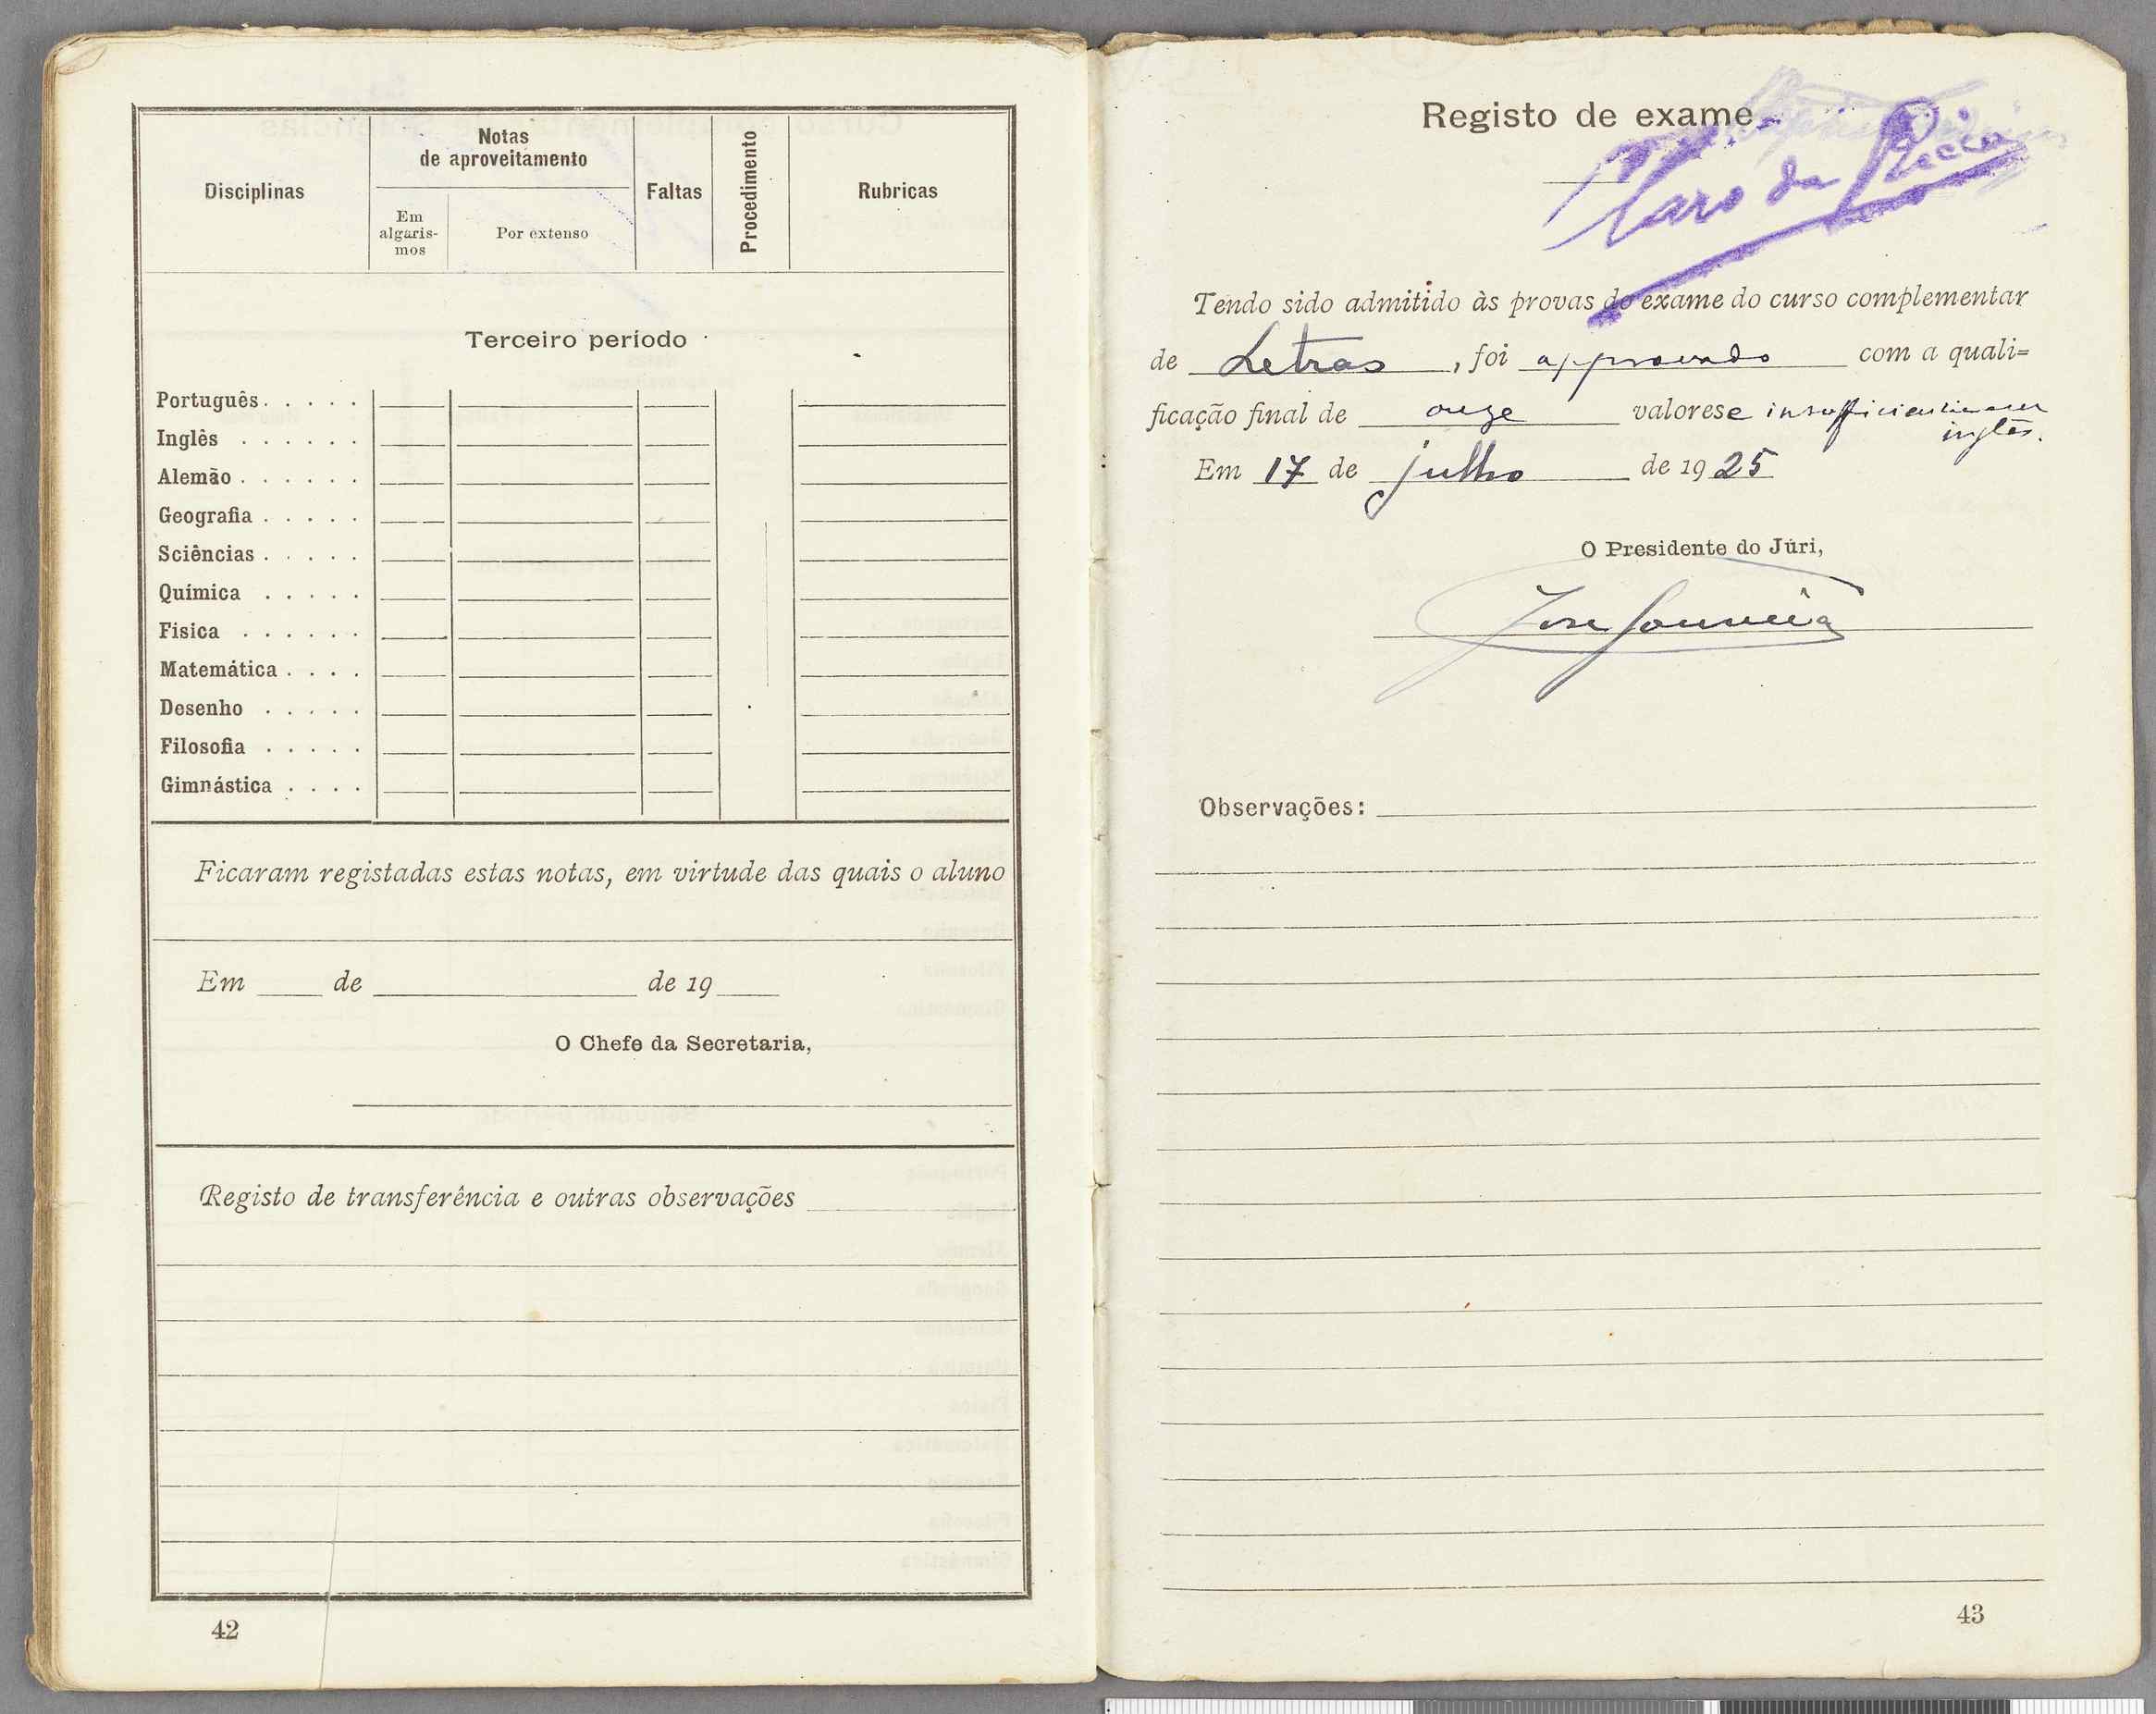 Disciplinas
Notas
de aproveitamento
Em
algaris-
mos
Por extenso
Faltas
Procedimento
Rubricas
Terceiro período
Português . . . . .
Inglês . . . . . .
Alemão . . . . . .
Geografia . . . . .
Sciências . . . . .
Química . . . . .
Fisica . . . . . .
Matemática . . . .
Desenho . . . . .
Filosofia . . . . .
Gimnástica . . . .
Ficaram registadas estas notas, em virtude das quais o aluno
Em de de 19
O Chefe da Secretaria,
Registo de transferência e outras observações
42
Registo de exame
da
Tendo sido admitido às provas do exame do curso complementar
de Letras, foi approvado com a quali=
ficação final de onze valores e insufficiencia em
inglês.
Em 17 de julho de 1925
O Presidente do Júri,
José
Observações:
43